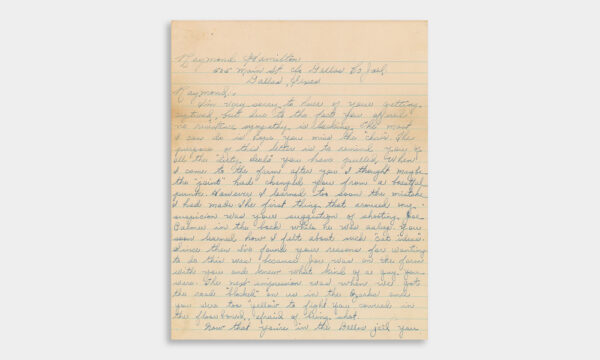 Raymond Hamilton
505 Main St c/o Dallas Co Jail
Dallas, Texas
Raymond:
I'm very sorry to hear of your getting
captured, but due to the fact you offered
no resistance sympathy is lacking. The most
I can do is hope you miss the "chair." The
purpose of this letter is to remind you of
all the "dirty deals" you have pulled. When
I came to the farm after you I thought maybe
the "joint" had changed you from a boastful
punk. However I learned too soon the mistake
I had made. The first thing that aroused my
suspicion was your suggestion of shooting Joe
Palmer in the back while he was asleep. You
soon learned how I felt about such "cat ideas"
Since then I've found your reasons for wanting
to do this was because Joe was on the farm
with you and knew what kind of a guy you
were. The next impression was when we got
the road blocked on us in the Ozarks and
you were too "yellow" to fight. You cowered in
the floorboard, afraid of being shot.
Now that you're in the Dallas jail you